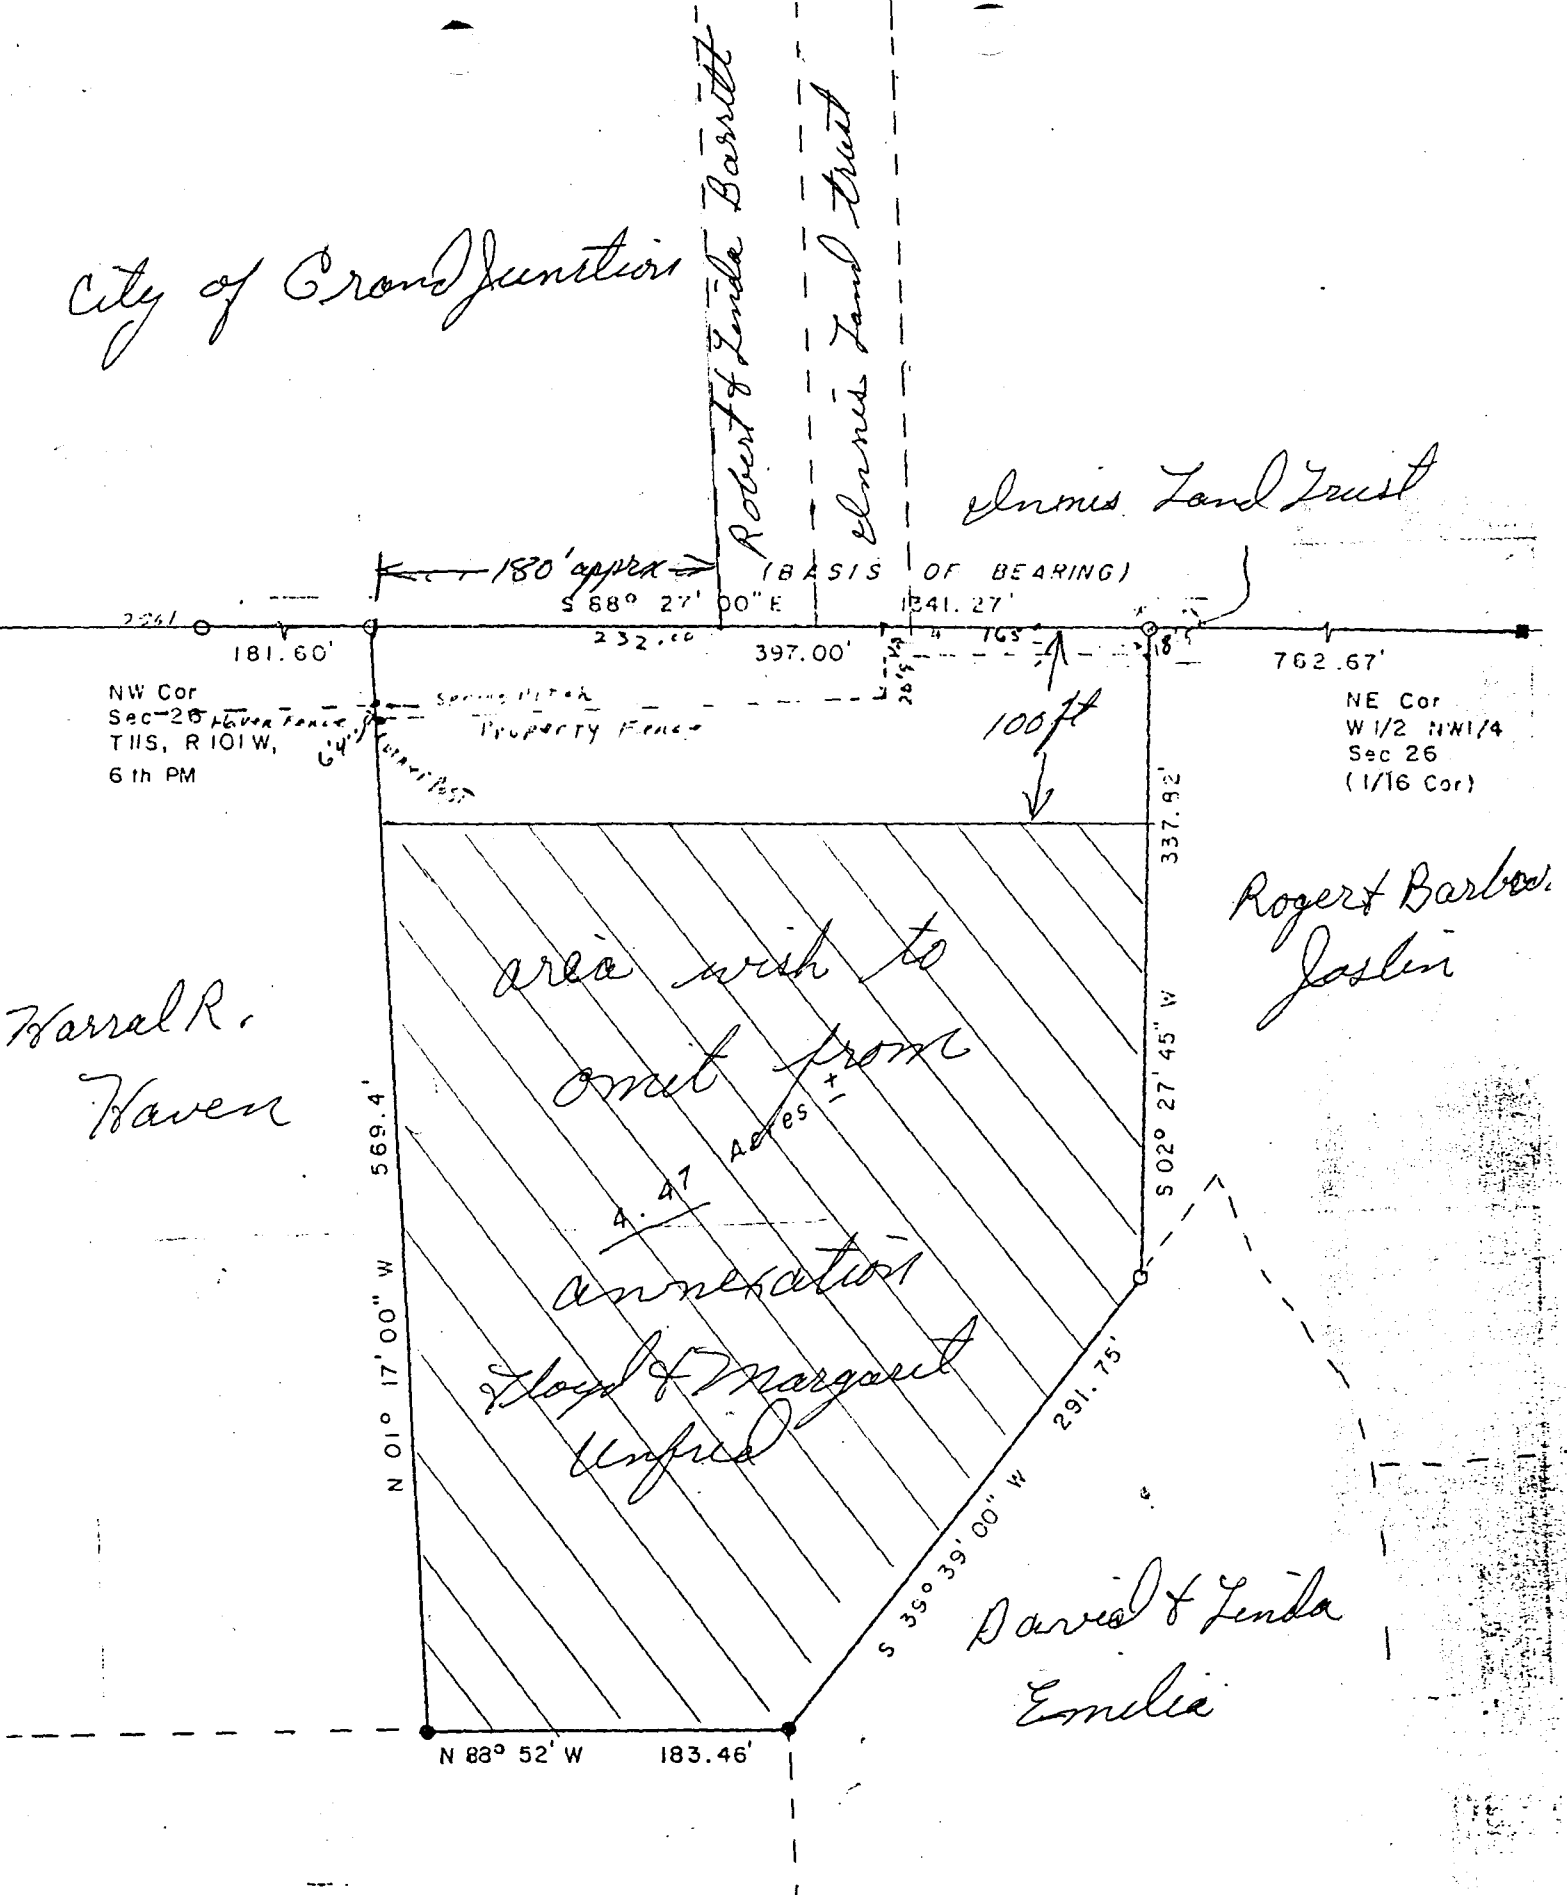 City of Grand Junction
Robert & Linda Barrett
Innis Land trust
Innis Land Trust
180' apprx
(BASIS OF BEARING)
S 88° 27' 00" E 1341.27'
181.60'
232.00
397.00'
165
18'
762.67'
NW Cor
Sec 26
T11S, R101W,
6th PM
Haven Fence
6'4"
Spring Ditch
Property Fence
Corner Post
100 ft
NE Cor
W 1/2 NW1/4
Sec 26
(1/16 Cor)
337.92'
S 02° 27' 45" W
Roger & Barbara
Joslin
Harral R.
Haven
569.4'
N 01° 17' 00" W
area wish to
omit from
4.47 Acres ±
annexation
Floyd & Margaret
Unfred
291.75'
S 39° 39' 00" W
David & Linda
Emilia
N 88° 52' W 183.46'